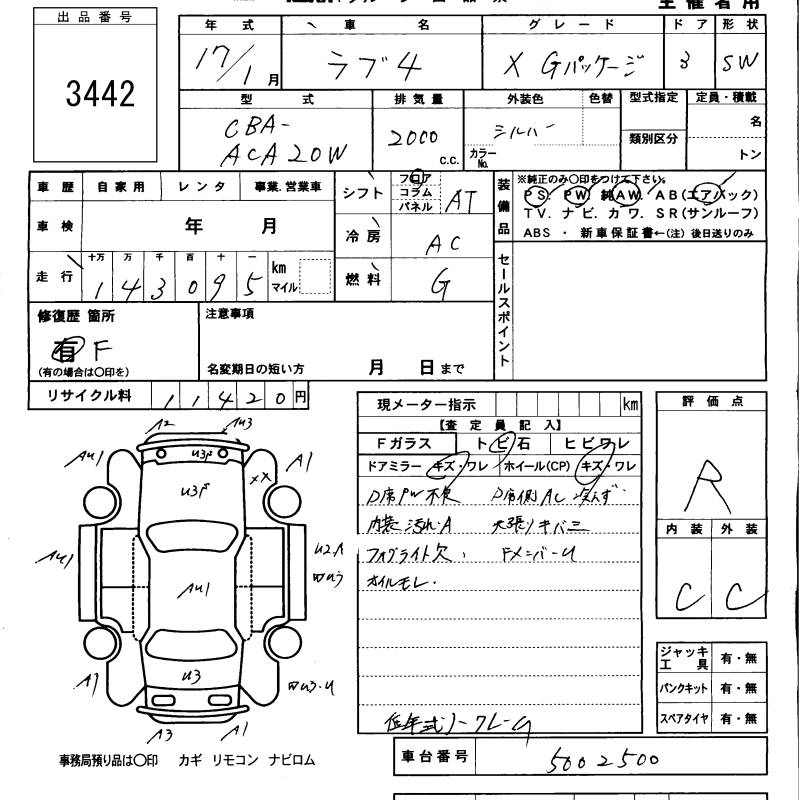 主 催 者 用
出 品 番 号
3442
年 式 車 名 グ レ ー ド ド ア 形 状
17/1 月 ラブ4 X Gパッケージ 3 SW
型 式 排 気 量 外装色 色替 型式指定 定員・積載
CBA-
ACA20W 2000 c.c. シルバー カラーNo. 類別区分 名
トン
車 歴 自 家 用 レ ン タ 事業.営業車 シフト フロア コラム パネル AT
車 検 年 月 冷 房 AC
走 行 十万 万 千 百 十 一 km マイル 燃 料 G
1 4 3 0 9 5
装備品 ※純正のみ〇印をつけて下さい。
PS. PW. 純AW. AB(エアバック)
TV. ナビ. カワ. SR(サンルーフ)
ABS ・ 新車保証書←(注) 後日送りのみ
セールスポイント
修復歴 箇所 注意事項
有 F
(有の場合は〇印を) 名変期日の短い方 月 日 まで
リサイクル料 1 1 4 2 0 円
現メーター指示 km
【査 定 員 記 入】
Fガラス ト ビ 石 ヒ ビ ワ レ
ドアミラー キズ・ワレ ホイール(CP) キズ・ワレ
D席PW不良 D席側AC
内装 汚れ・A 天張りキバミ
フォグライト欠. Fメンバーu
オイルモレ.
低年式ノークレーム
評 価 点
R
内 装 外 装
C C
A2 Au3
Au1 u3 A1
u3 xx
Au1 Au1 u2.A
A1 u3
A3 A1
ジャッキ
工 具 有・無
パンクキット 有・無
スペアタイヤ 有・無
事務局預り品は〇印 カギ リモコン ナビロム
車台番号 5002500